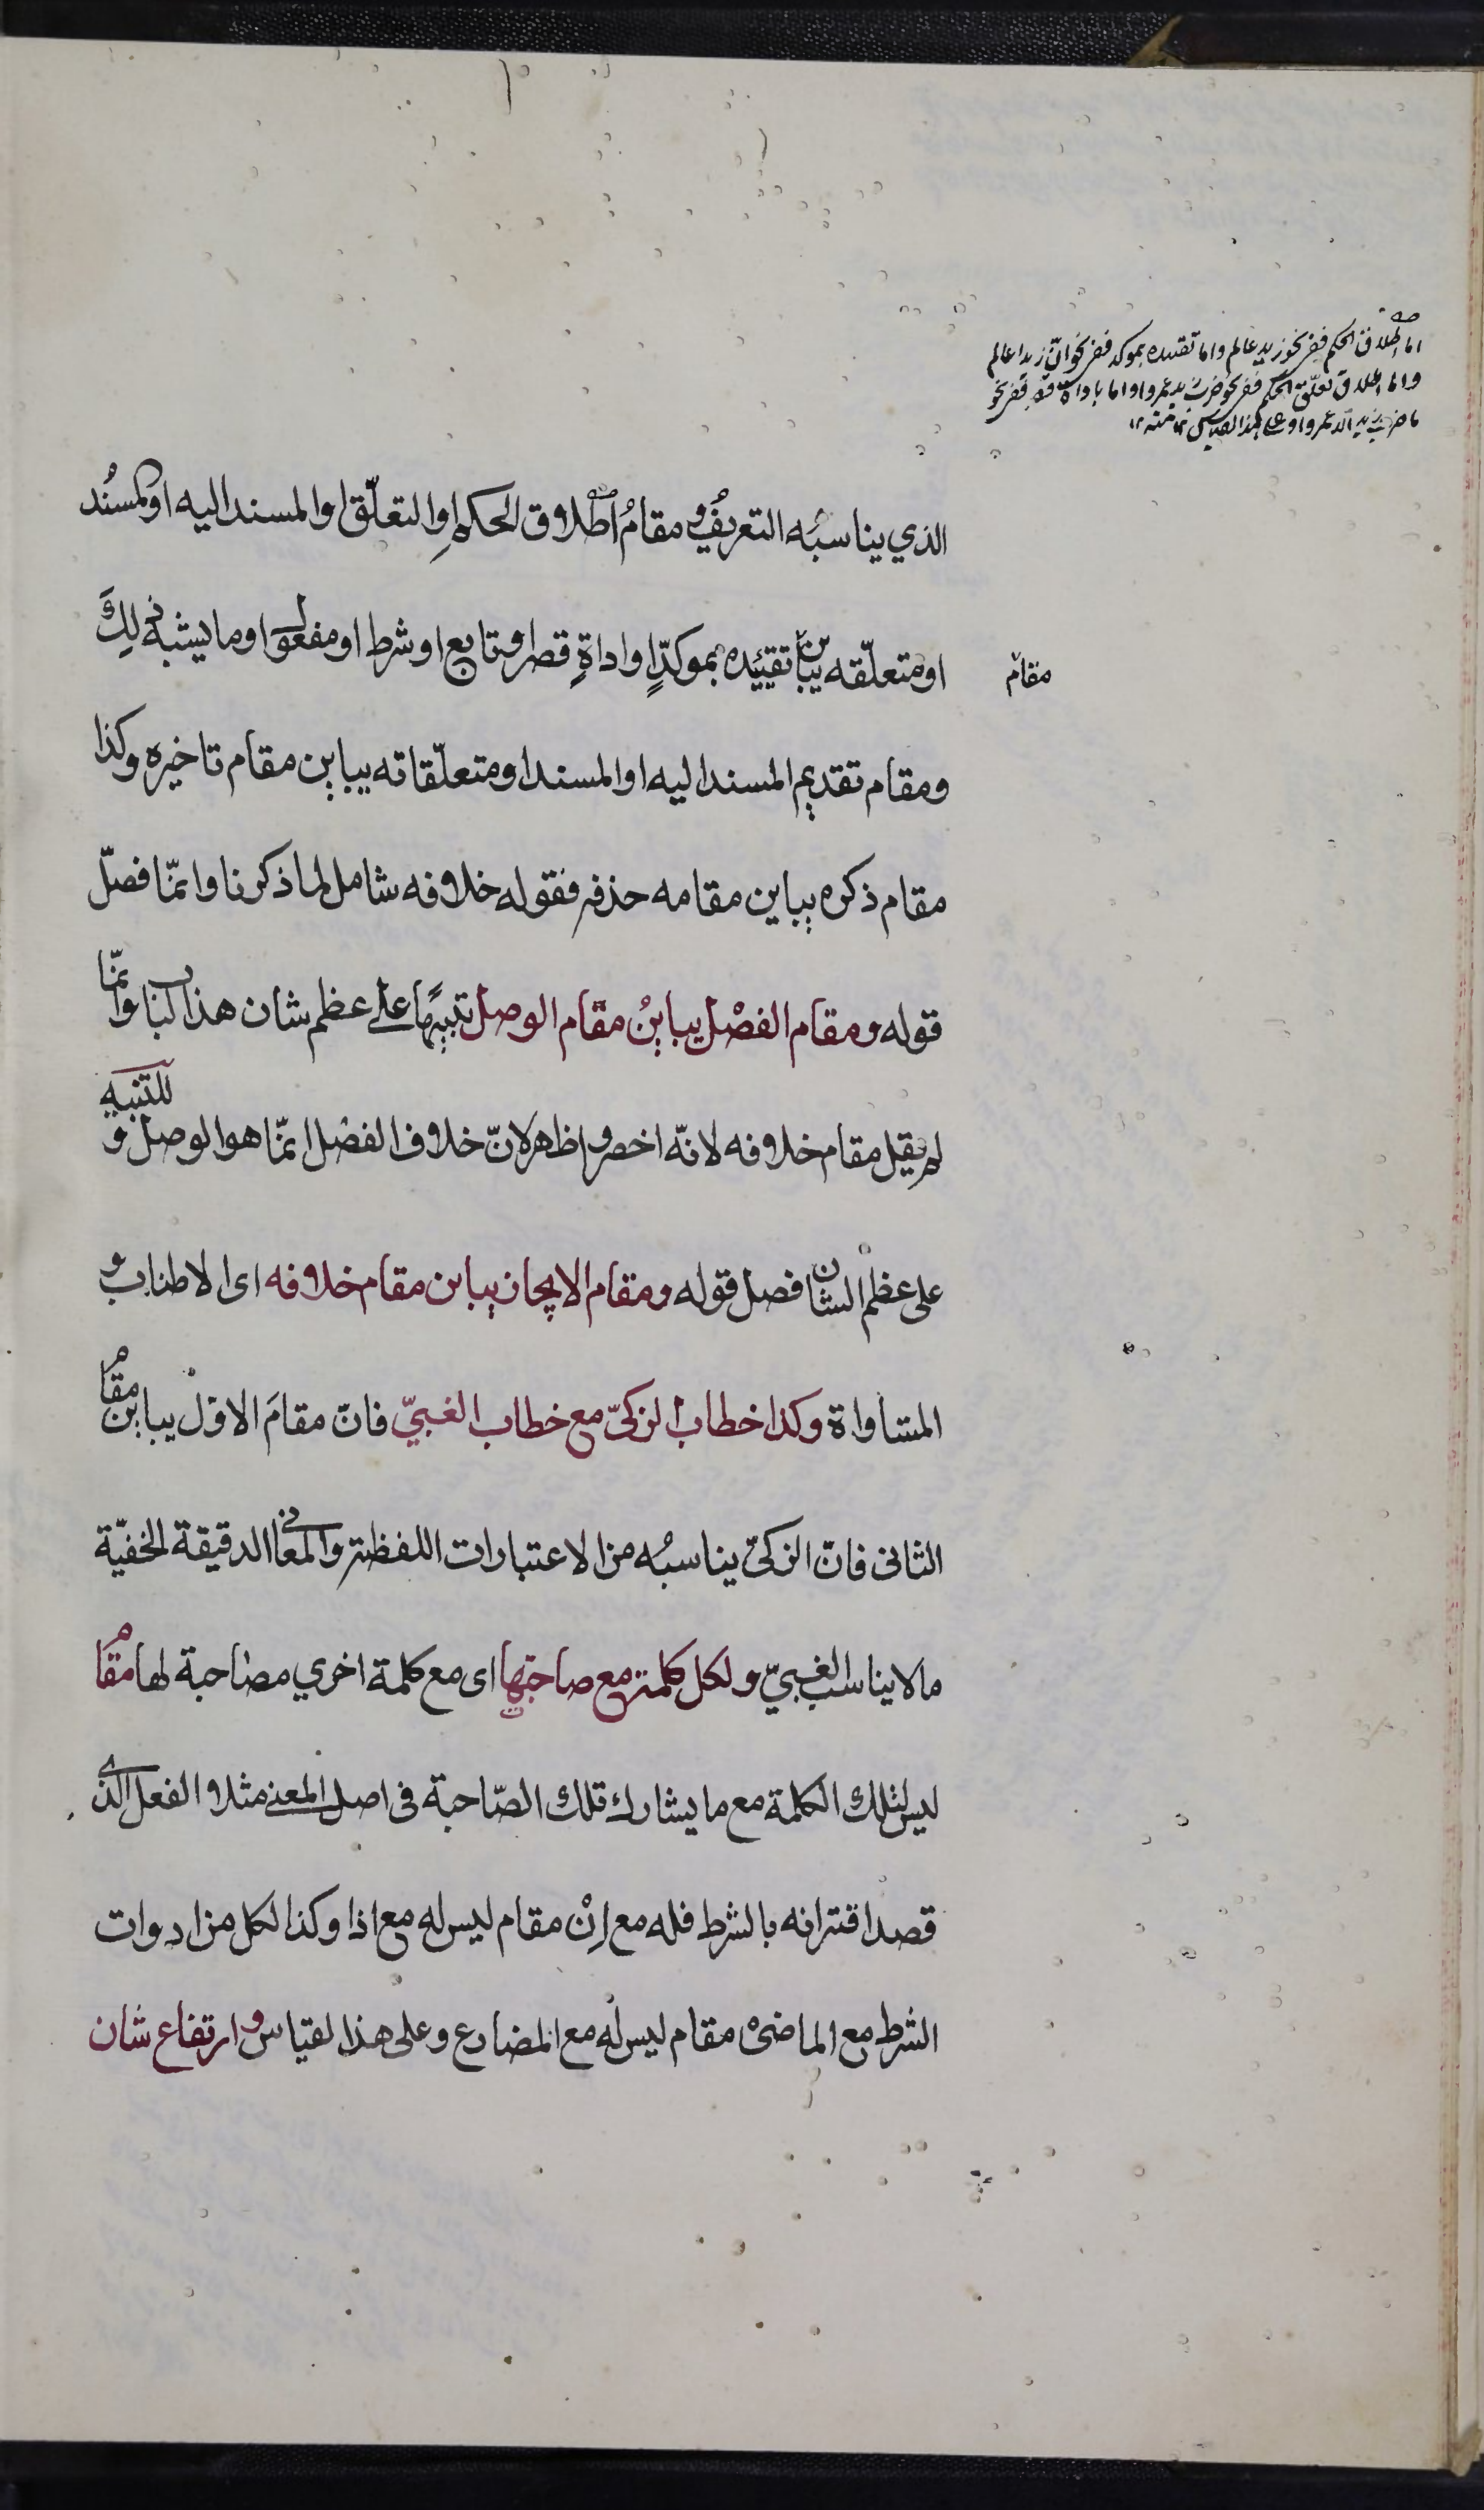 اما اطلاق الحكم ففي نحو زيد عالم واما تقييده بموكد ففي نحو انّ زيدا عالم
واما اطلاق تعلّق الحكم ففي نحو ضرب زيد عمروا واما باداة قصر ففي نحو
ما ضرب زيد الا عمروا وعلى هذا القياس منه ١٢
الذي يناسبُه التعريفُ ومقامُ اطلاق الحكم اوِ التعلّق او المسند اليه او المسُند
او متعلّقه يباين تقييَده بموكدٍّ او اداةِ قصر او تابع او شرط او مفعول او ما يشبه ذلِكَ
مقام
ومقام تقديم المسند اليه او المسند او متعلّقاته يباين مقام تاخيره وكذا
مقام ذكره يباين مقامه حذفه فقوله خلافه شامل لما ذكرنا وانمّا فصلّ
قوله ومقام الفصْل يباينُ مقام الوصل تنبيهًا على عظم شان هذا الباب وانمّا
لم يقل مقام خلافه لانّه اخصر واظهر لانّ خلاف الفصْل انمّا هو الوصل و للتنبيه
على عظم الشان فصل قوله ومقام الايجاز يباين مقام خلافه اى الاطناب و
المساواة وكذا خطاب الزكىّ مع خطاب الغبيّ فانّ مقامَ الاوّل يباين مقامُ
الثانى فانّ الزكىّ يناسبُه من الاعتبارات اللفظية والمعانى الدقيقة الخفيّة
مالا يناسب الغبيّ ولكل كلمة مع صاحبتها اى مع كلمة اخري مصاحبة لها مقامُ
ليس لتلك الكلمة مع ما يشارك تلك الصّاحبة فى اصل المعنى مثلا الفعل الذى
قصد اقترانه بالشرط فله مع اِنْ مقام ليس له مع اذا وكذا لكل من ادوات
الشرط مع الماضى مقام ليس له مع المضارع وعلى هذا القياس وارتفاع شان